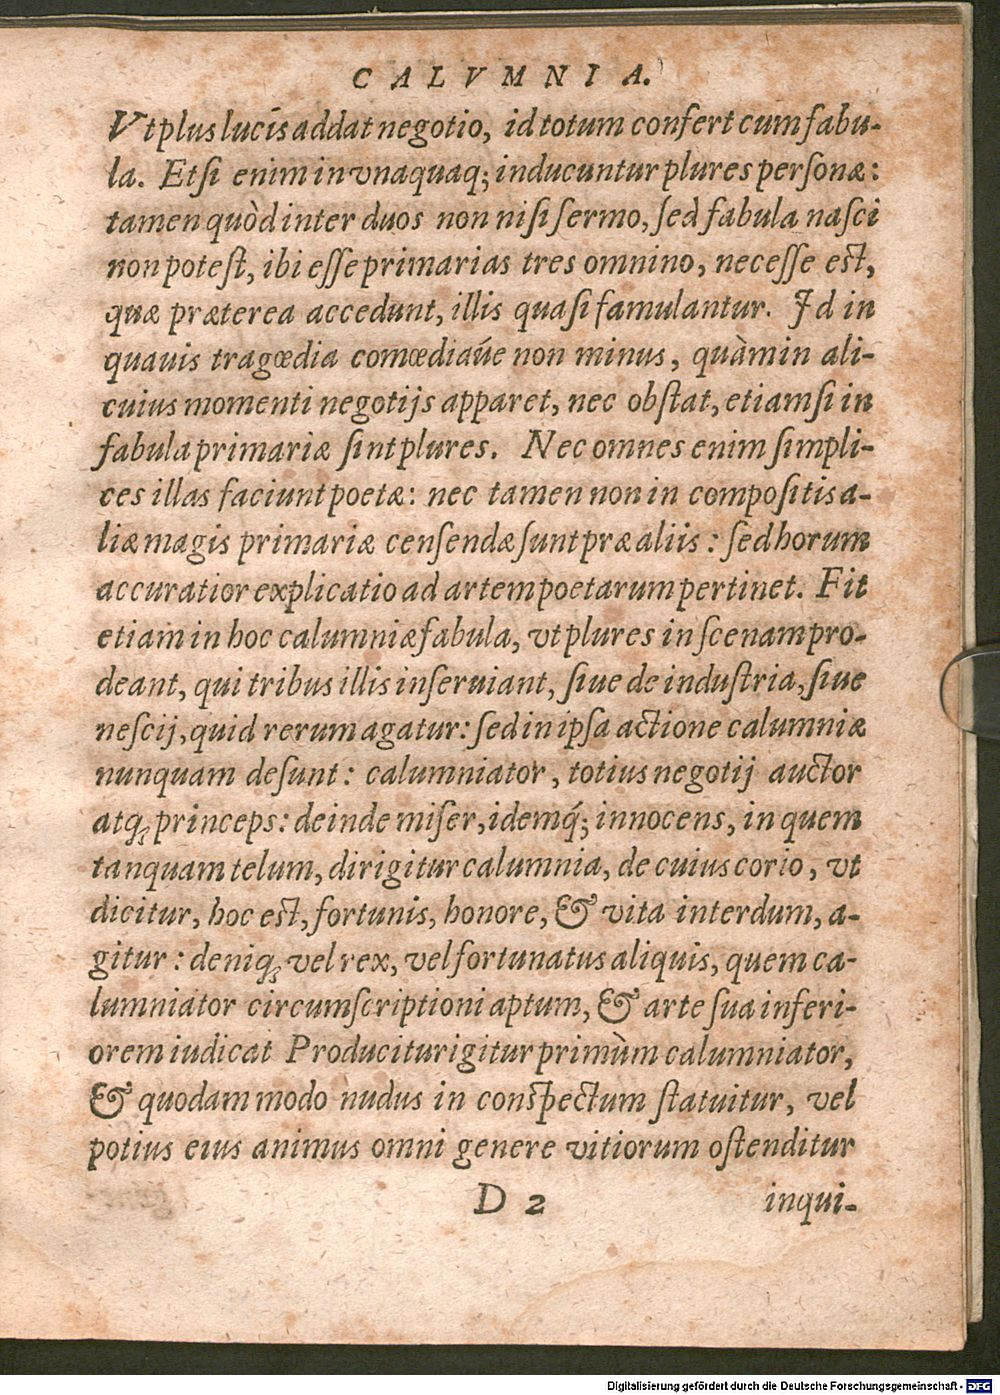 CALVMNIA.
Vt plus lucis addat negotio, id totum confert cum fabu-
la. Etsi enim in vnaquaq; inducuntur plures personæ:
tamen quòd inter duos non nisi sermo, sed fabula nasci
non potest, ibi esse primarias tres omnino, necesse est,
quæ præterea accedunt, illis quasi famulantur. Id in
quauis tragœdia comœdiaúe non minus, quàm in ali-
cuius momenti negotijs apparet, nec obstat, etiamsi in
fabula primariæ sint plures. Nec omnes enim simpli-
ces illas faciunt poetæ: nec tamen non in compositis a-
liæ magis primariæ censendæ sunt præ aliis: sed horum
accuratior explicatio ad artem poetarum pertinet. Fit
etiam in hoc calumniæ fabula, vt plures in scenam pro-
deant, qui tribus illis inseruiant, siue de industria, siue
nescij, quid rerum agatur: sed in ipsa actione calumniæ
nunquam desunt: calumniator, totius negotij auctor
atq; princeps: deinde miser, idemq́; innocens, in quem
tanquam telum, dirigitur calumnia, de cuius corio, vt
dicitur, hoc est, fortunis, honore, & vita interdum, a-
gitur: deniq; vel rex, vel fortunatus aliquis, quem ca-
lumniator circumscriptioni aptum, & arte sua inferi-
orem iudicat Producitur igitur primùm calumniator,
& quodam modo nudus in conspectum statuitur, vel
potius eius animus omni genere vitiorum ostenditur
D 2 inqui-
Digitalisierung gefördert durch die Deutsche Forschungsgemeinschaft - DFG